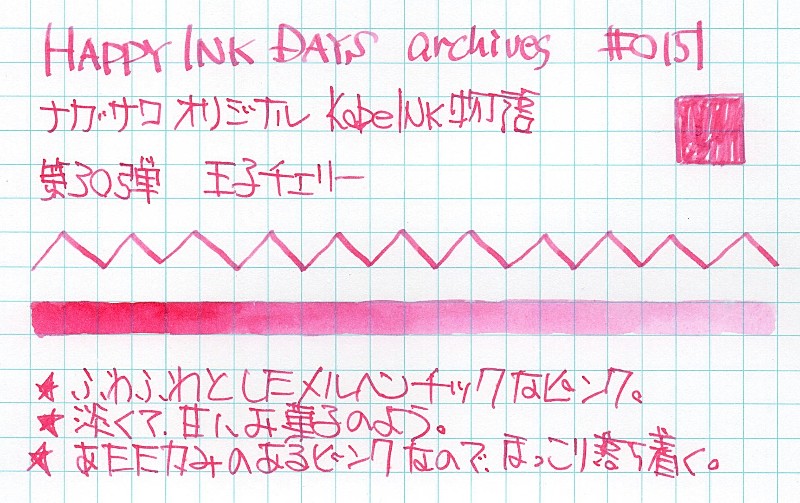 HAPPY INK DAYS archives #0151
ナガサワ オリジナル Kobe INK物語
第30弾 王子チェリー
★ ふわふわとしたメルヘンチックなピンク。
★ 淡くて、甘いお菓子のよう。
★ あたたかみのあるピンクなので、ほっこり落ち着く。